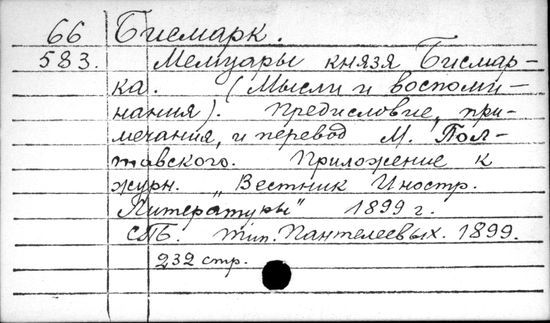 66 Бисмарк.
583. Мемуары князя Бисмар-
ка. (Мысли и воспоми-
нания). Предисловие, при-
мечания, и перевод М. Пол-
тавского. Приложение к
журн. „Вестник Иностр.
Литературы" 1899 г.
СПБ. тип. Пантелеевых. 1899.
232 стр.